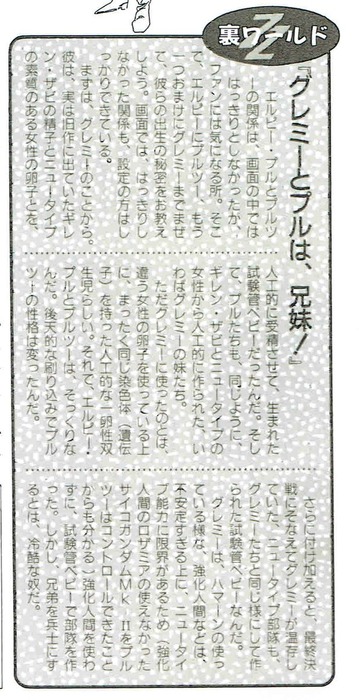 裏ZZワールド
『グレミーとプルは、兄妹！』
エルピー・プルとプルツ
ーの関係は、画面の中では
はっきりとしなかったが、
ファンには気になる所。そこ
で、エルピーにプルツー、もう
一つおまけにグレミーまでまぜ
て、彼らの出生の秘密をお教え
しよう。画面では、はっきりし
なかった関係も、設定の方はし
っかりできている。
まずは、グレミーのことから。
彼は、実は旧作に出ていたギレ
ン・ザビの精子とニュータイプ
の素質のある女性の卵子とを、
人工的に受精させて、生まれた
試験管ベビーだったんだ。そし
て、プルたちも、同じように、
ギレン・ザビとニュータイプの
女性から人工的に作られた、い
わばグレミーの妹たち。
ただグレミーに使ったのとは、
違う女性の卵子を使っている上
に、まったく同じ染色体（遺伝
子）を持った人工的な一卵性双
生児らしい。それで、エルピー・
プルとプルツーは、そっくりな
んだ。後天的な刷り込みでプル
ツーの性格は変ったんだ。
さらに付け加えると、最終決
戦にそなえてグレミーが温存し
ていた、ニュータイプ部隊も、
グレミーたちと同じ様にして作
られた試験管ベビーなんだ。
グレミーは、ハマーンの使っ
ている様な、強化人間などは、
不安定すぎる上に、ニュータイ
プ能力に限界があるため（強化
人間のロザミアの使えなかった
サイコガンダムMk-Ⅱをプル
ツーはコントロールできたこと
からも分かる）強化人間を使わ
ずに、試験管ベビーで部隊を作
った。しかし、兄弟を兵士にす
るとは、冷酷な奴だ。